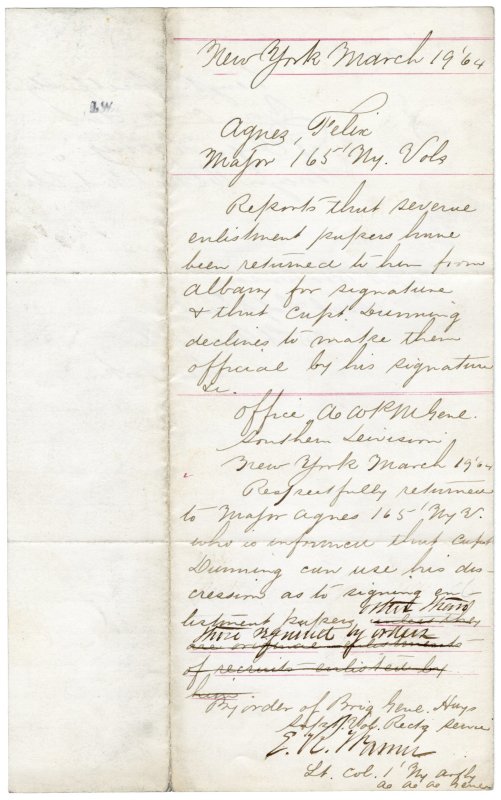 L.W.
New York March 19 '64
Agnes, Felix
Major 165' Ny. Vols
Reports that severue
enlistment papers have
been returned to him from
albany for signature
& that Capt. Dunning
declines to make them
official by his signature
&c.
Office A A P M Gene.
Southern Division
New York March 19 '64
Respectfully returned
to Major Agnes 165' Ny V.
who is informed that Capt
Dunning can use his dis-
cression as to signing en-
listment papers other than
unless they
those required by orders
are original enlistments
of recruits enlisted by
him
By order of Brig Gene. Hays
Supt. Vol. Rectg service
Lt. Col. 1' Ny arty
a a a Gener